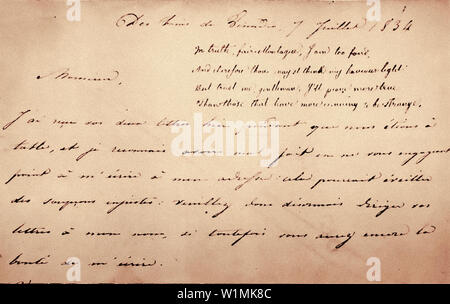 Des bains de Gurnau 7 Juillet 1834
In truth, fair Montague, I am too fond,
And therefore thou mayst think my haviour light:
But trust me, gentleman, I'll prove more true
Than those that have more cunning to be strange.
Monsieur,
J'ai reçu vos deux lettres hier, pendant que nous étions à
table, et je reconnais avoir mal fait en ne vous engageant
point à m'écrire à mon adresse: cela pourrait éveiller
des soupçons injustes: veuillez donc désormais diriger vos
lettres à mon nom, si toutefois vous avez encore la
bonté de m'écrire.
alamy
W1MK8C
www.alamy.com